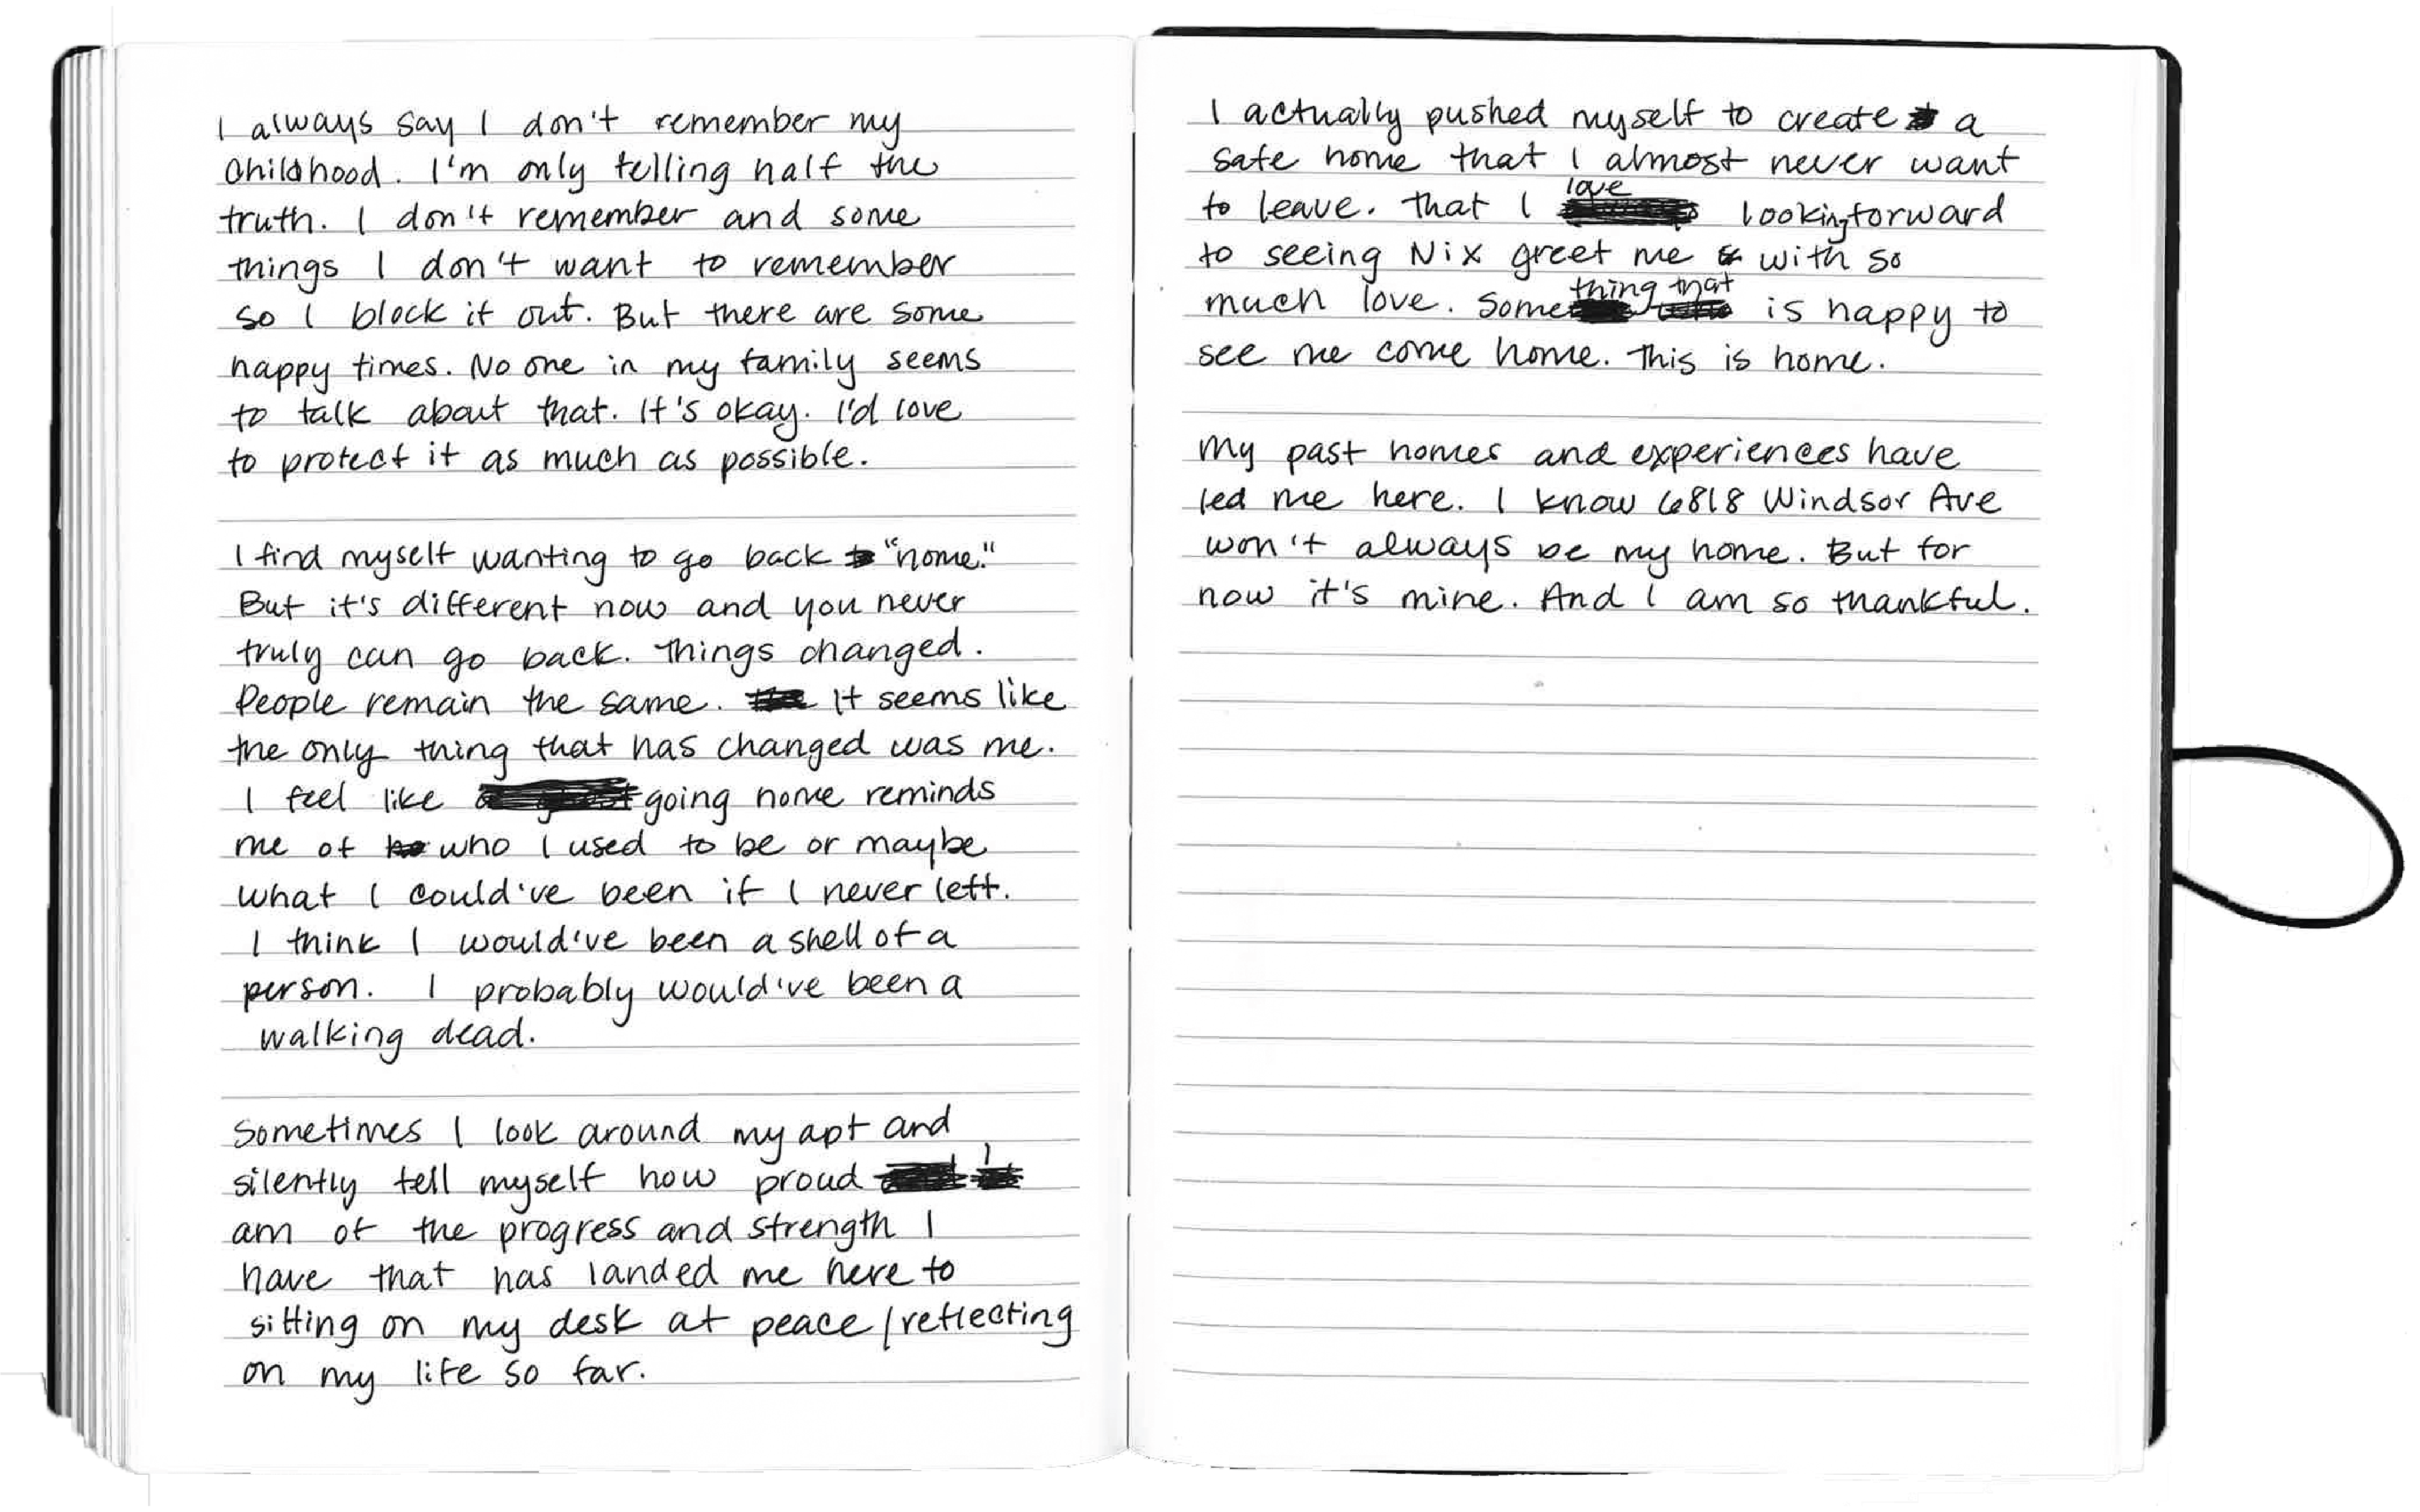 I always say I don't remember my
childhood. I'm only telling half the
truth. I don't remember and some
things I don't want to remember
so I block it out. But there are some
happy times. No one in my family seems
to talk about that. It's okay. I'd love
to protect it as much as possible.
I find myself wanting to go back to "home."
But it's different now and you never
truly can go back. Things changed.
People remain the same. It seems like
the only thing that has changed was me.
I feel like going home reminds
me of who I used to be or maybe
what I could've been if I never left.
I think I would've been a shell of a
person. I probably would've been a
walking dead.
Sometimes I look around my apt and
silently tell myself how proud I
am of the progress and strength I
have that has landed me here to
sitting on my desk at peace/reflecting
on my life so far.
I actually pushed myself to create a
safe home that I almost never want
to leave. That I love looking forward
to seeing Nix greet me with so
much love. Something that is happy to
see me come home. This is home.
My past homes and experiences have
led me here. I know 6818 Windsor Ave
won't always be my home. But for
now it's mine. And I am so thankful.